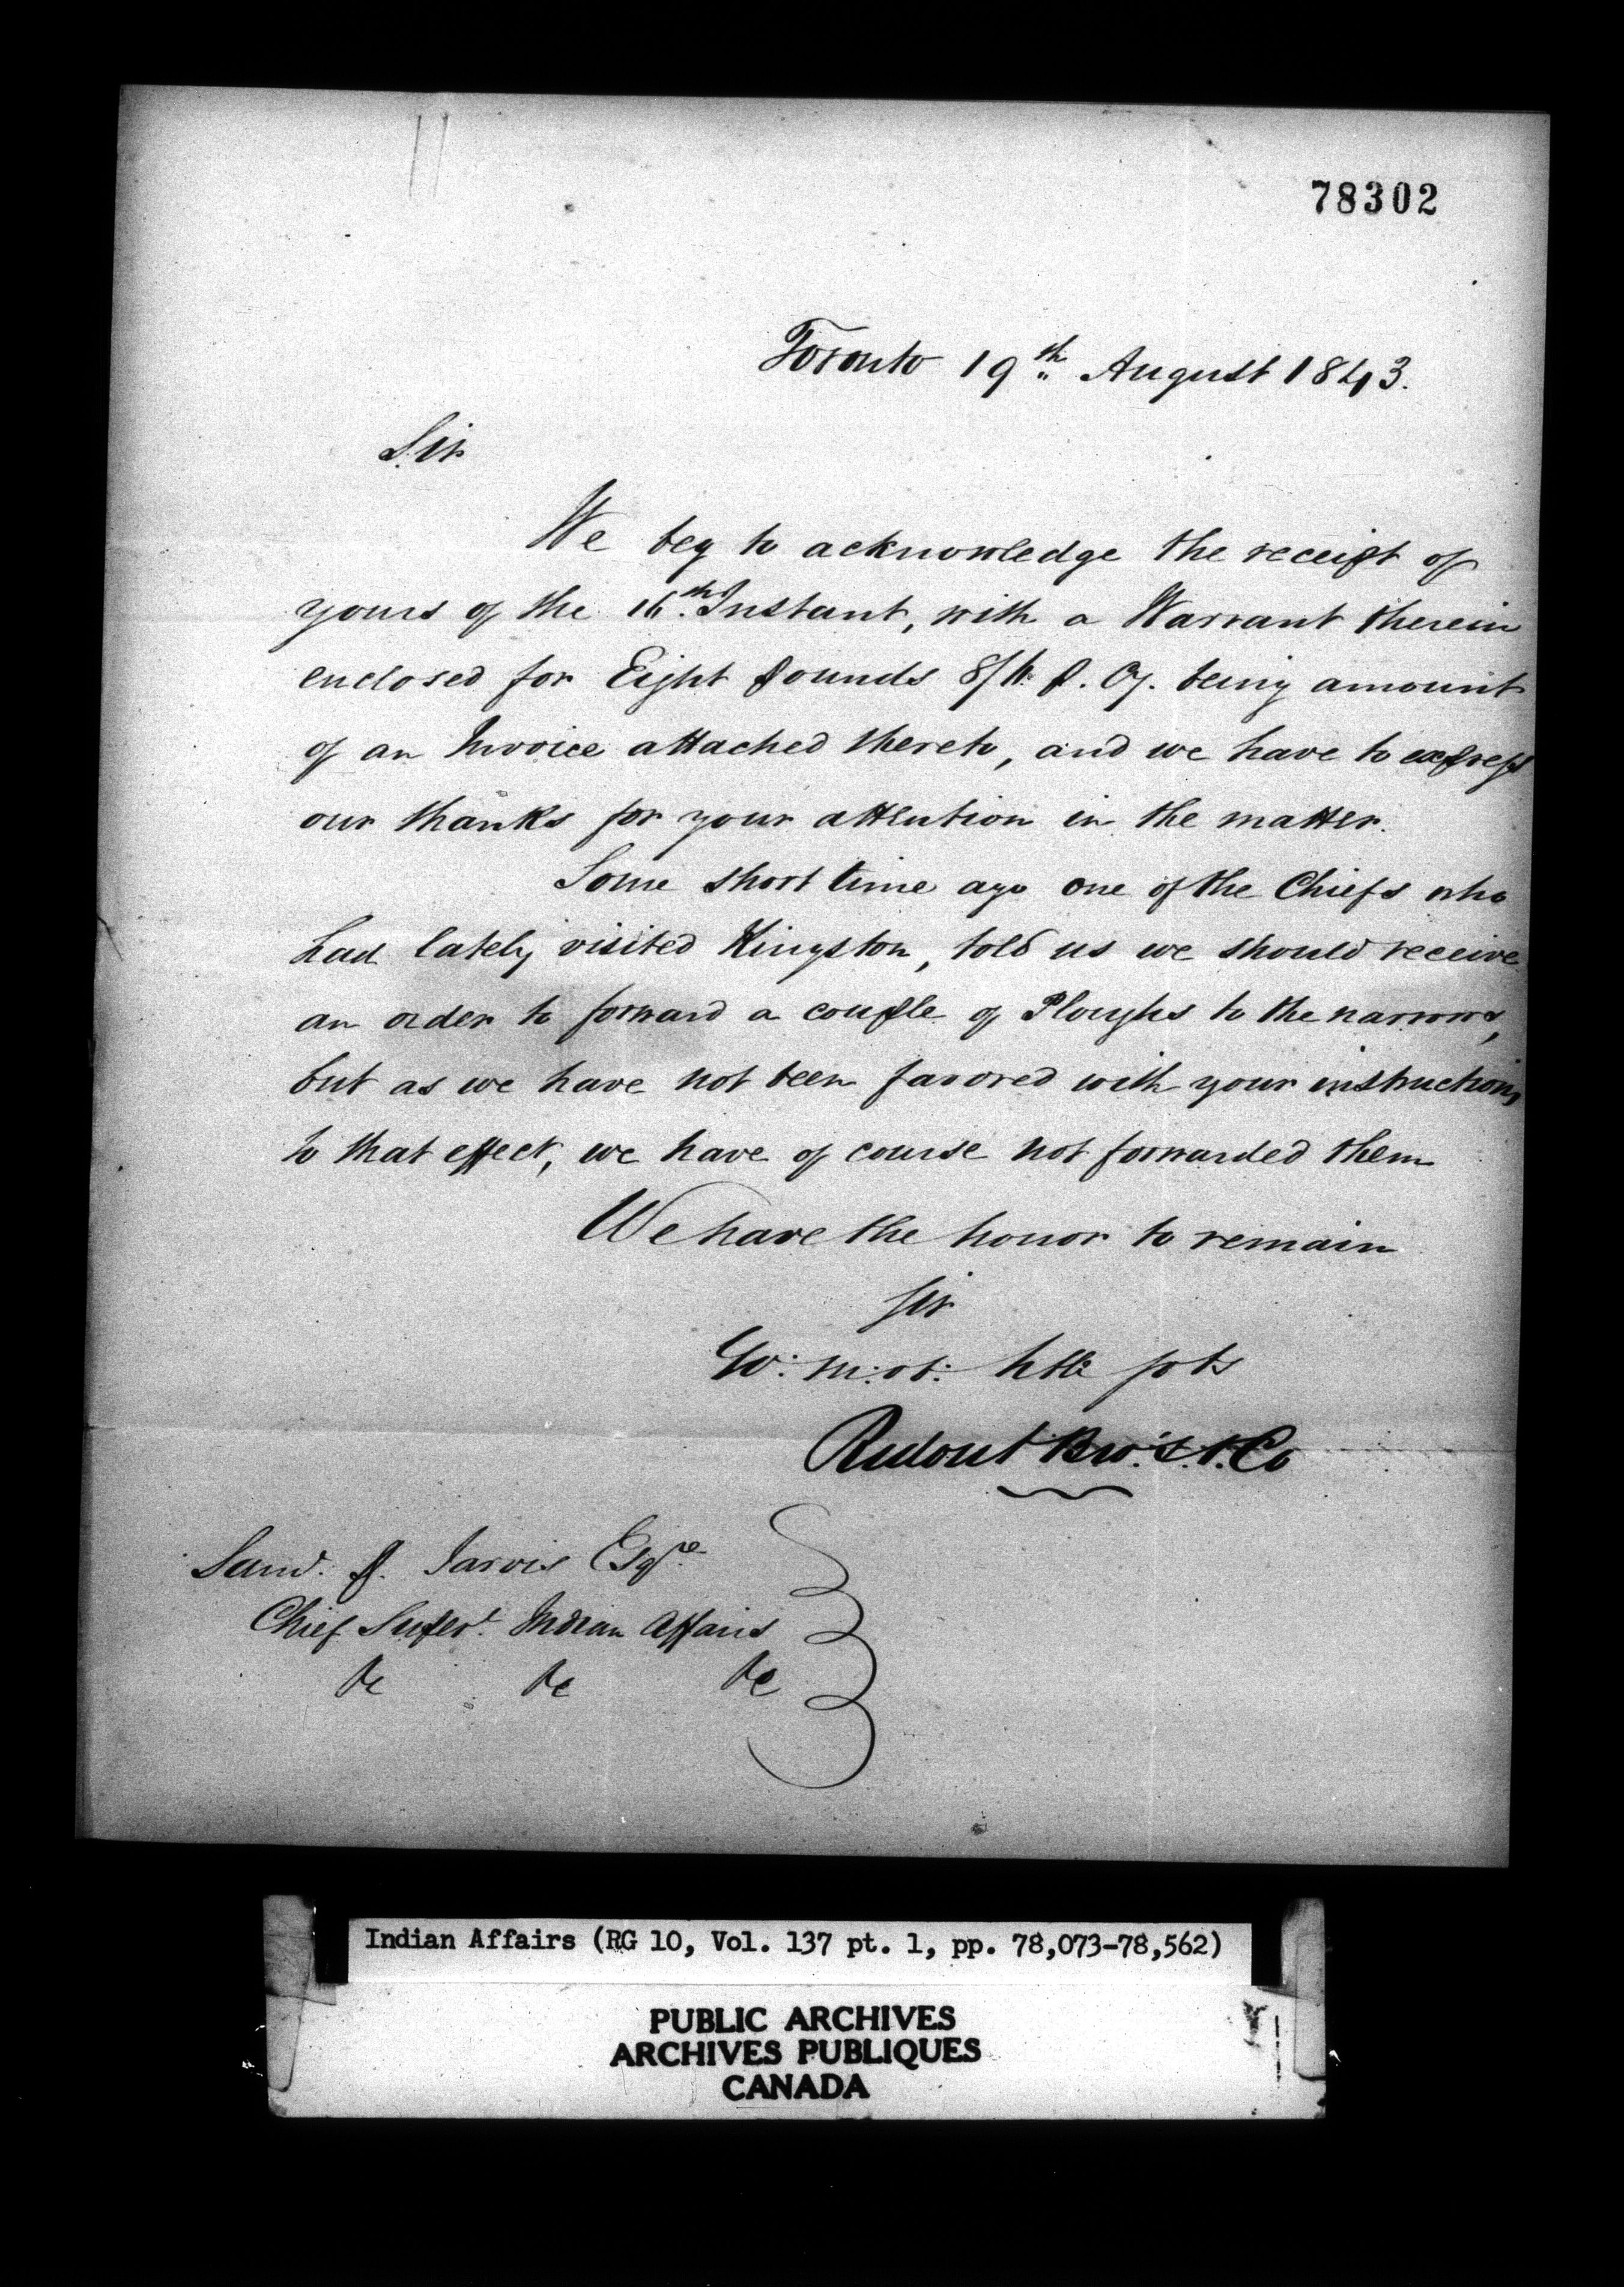 78302
Toronto 19th August 1843.
Sir
We beg to acknowledge the receipt of
yours of the 16th Instant, with a Warrant therein
enclosed for Eight pounds 8/ p. Cy. being amount
of an Invoice attached thereto, and we have to express
our thanks for your attention in the matter.
Some short time ago one of the Chiefs who
had lately visited Kingston, told us we should receive
an order to forward a couple of Ploughs to the narrows,
but as we have not been favored with your instructions
to that effect, we have of course not forwarded them
We have the honor to remain
Sir
Yo: m: ob: hble svts
Ridout Bro's. & Co
Saml. P. Jarvis Esqre
Chief Supert. Indian Affairs
&c &c &c
Indian Affairs (RG 10, Vol. 137 pt. 1, pp. 78,073-78,562)
PUBLIC ARCHIVES
ARCHIVES PUBLIQUES
CANADA